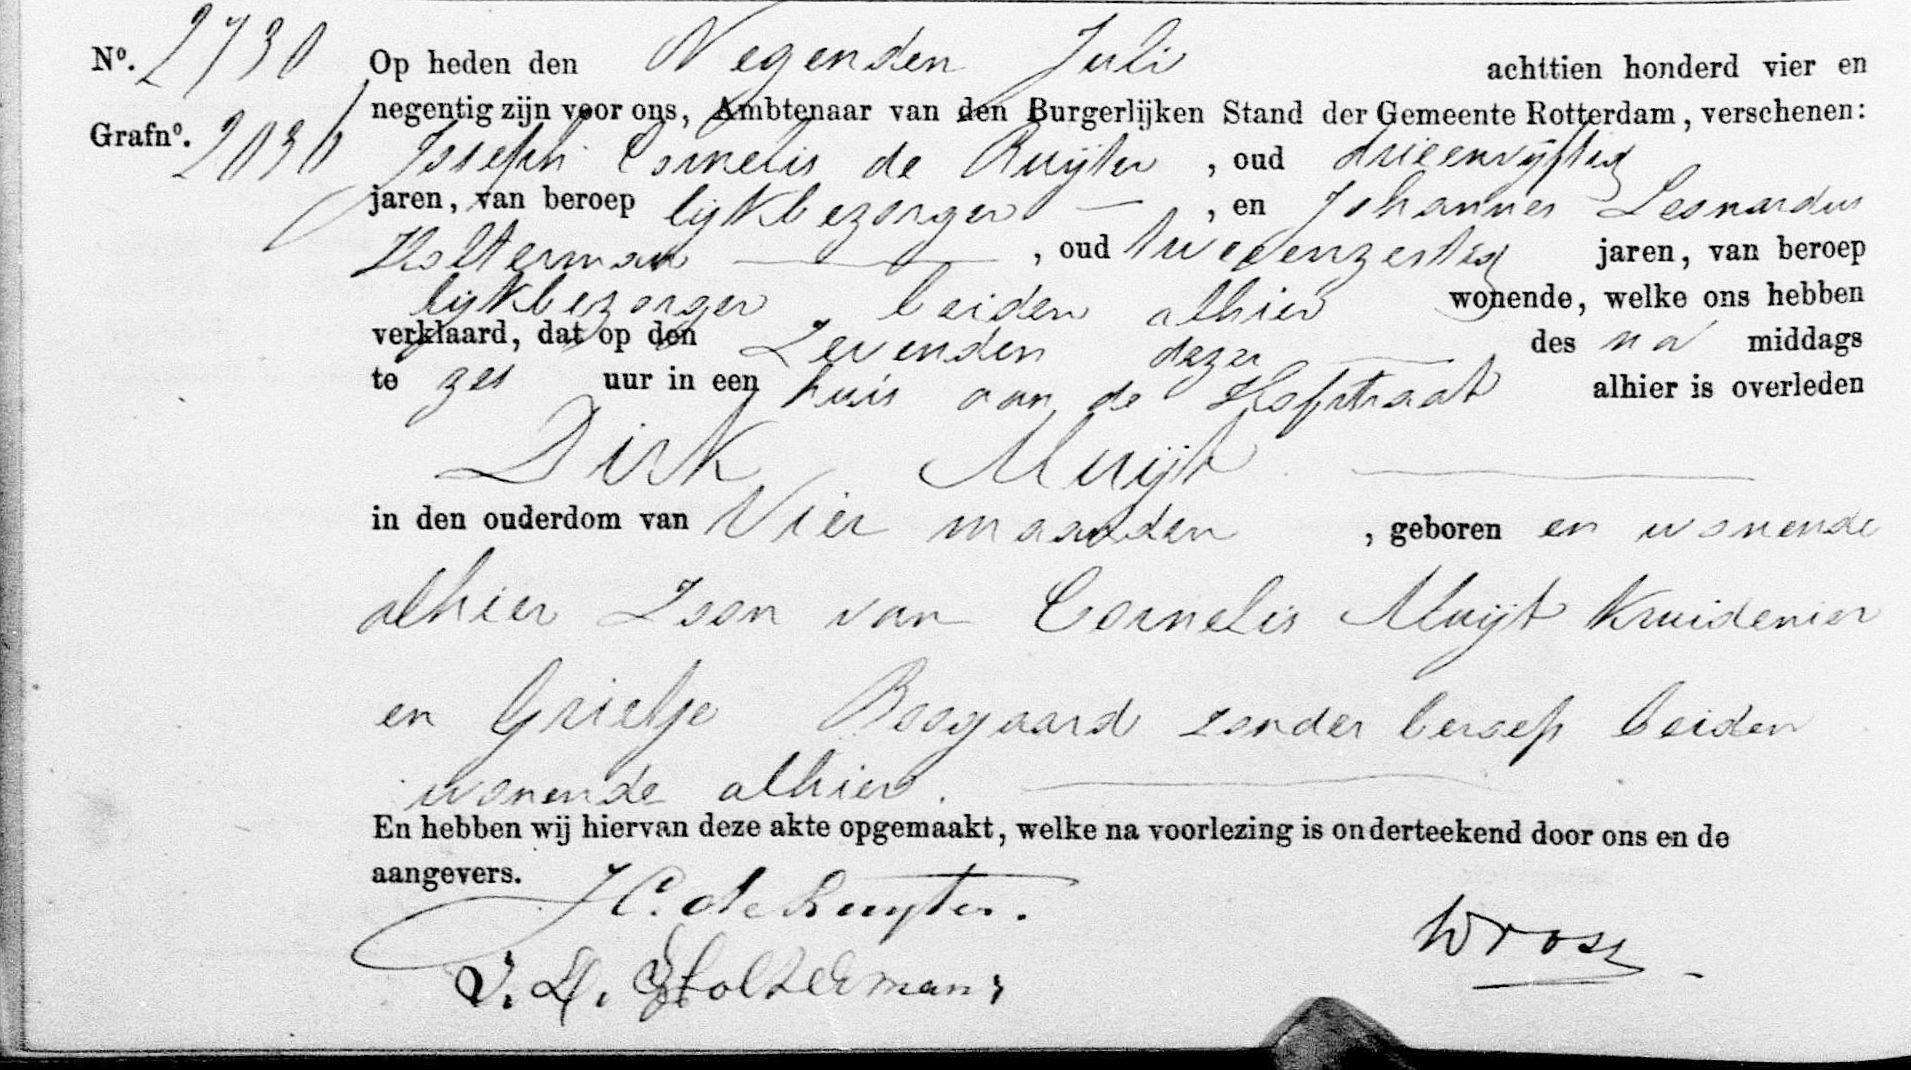 Nº. 2730 Op heden den Negenden Juli achttien honderd vier en
negentig zijn voor ons, Ambtenaar van den Burgerlijken Stand der Gemeente Rotterdam, verschenen:
Grafnº. 2030 Joseph Cornelis de Ruijter, oud drieenvijftig
jaren, van beroep lijkbezorger —, en Johannes Leonardus
Holterman —, oud tweeenzestig jaren, van beroep
lijkbezorger beiden alhier wonende, welke ons hebben
verklaard, dat op den Zevenden dezer — des na middags
te zes uur in een huis aan de Hofstraat alhier is overleden
Dirk Muijt —
in den ouderdom van Vier maanden, geboren en wonende
alhier Zoon van Cornelis Muijt Kruidenier
en Grietje Boogaard zonder beroep beiden
wonende alhier. —
En hebben wij hiervan deze akte opgemaakt, welke na voorlezing is onderteekend door ons en de
aangevers.
J.C. de Ruyter.
J. L. Holterman